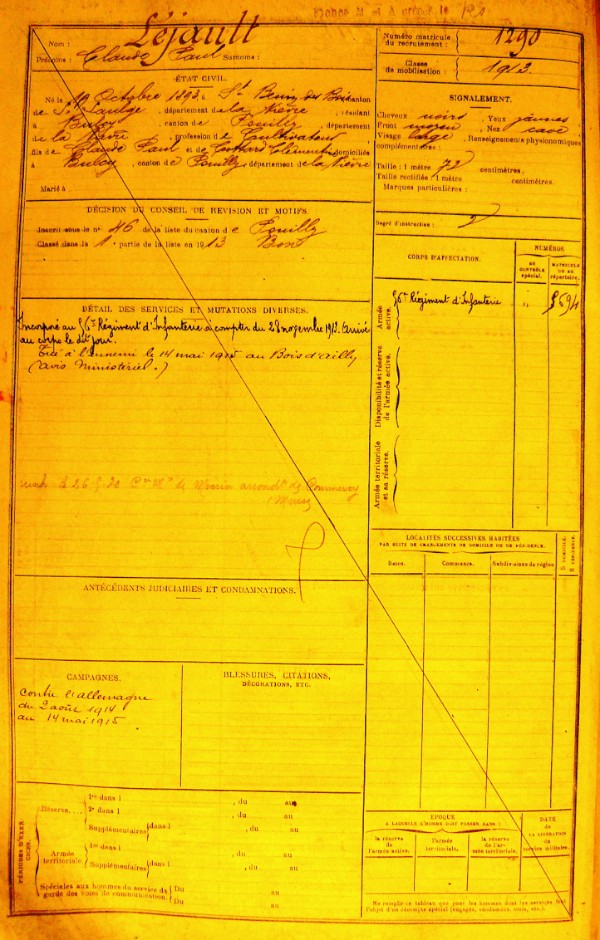 Nom : Léjault
Prénoms : Claude Paul Surnoms :
Numéro matricule
du recrutement : 1290
Classe
de mobilisation : 1913
ÉTAT CIVIL.
Né le 19 Octobre 1893, à St Benin des Bois canton
de St Saulge, département de la Nièvre, résidant
à Bulcy, canton de Pouilly, département
de la Nièvre, profession de Cultivateur
fils de Claude Paul et de Clémentine domiciliés
à Bulcy, canton de Pouilly département de la Nièvre
Marié à
SIGNALEMENT.
Cheveux noirs Yeux jaunes
Front moyen, Nez cave
Visage large, Renseignements physionomiques
complémentaires :
Taille : 1 mètre 72 centimètres.
Taille rectifiée : 1 mètre centimètres.
Marques particulières :
Degré d'instruction : 2
DÉCISION DU CONSEIL DE REVISION ET MOTIFS.
Inscrit sous le n° 46 de la liste du canton de Pouilly
Classé dans la 1e partie de la liste en 1913 Bon
CORPS D'AFFECTATION.
NUMÉROS
AU CONTRÔLE spécial.
MATRICULE OU AU répertoire.
Armée active.
56e Régiment d'Infanterie
5694
Disponibilité et réserve de l'armée active.
Armée territoriale et sa réserve.
DÉTAIL DES SERVICES ET MUTATIONS DIVERSES.
Incorporé au 56e Régiment d'Infanterie à compter du 28 novembre 1913. Arrivé
au corps le dit jour.
Tué à l'ennemi le 14 mai 1915 au Bois d'Ailly
(avis Ministériel.)
de Commercy
(Meuse)
LOCALITÉS SUCCESSIVES HABITÉES
PAR SUITE DE CHANGEMENTS DE DOMICILE OU DE RÉSIDENCE.
Dates. Communes. Subdivisions de région
D. DOMICILE.
R. RÉSIDENCE.
ANTÉCÉDENTS JUDICIAIRES ET CONDAMNATIONS.
CAMPAGNES.
contre l'allemagne
du 2 août 1914
au 14 mai 1915
BLESSURES, CITATIONS,
DÉCORATIONS, ETC.
PÉRIODES D'EXERCICES.
Réserve....
1re dans l , du au
2e dans l , du au
Supplémentaires dans l , du au
Armée territoriale.
1re dans l , du au
Supplémentaires dans l , du au
Spéciales aux hommes du service de
garde des voies de communication.
Du au
Du au
ÉPOQUE
A LAQUELLE L'HOMME DOIT PASSER DANS :
la réserve de l'armée active.
l'armée territoriale.
la réserve de l'armée territoriale.
DATE
DE LA LIBÉRATION
du service militaire.
Ne remplir ce tableau que pour les hommes dont les services font
l'objet d'un décompte spécial (engagés, condamnés, omis, etc.).